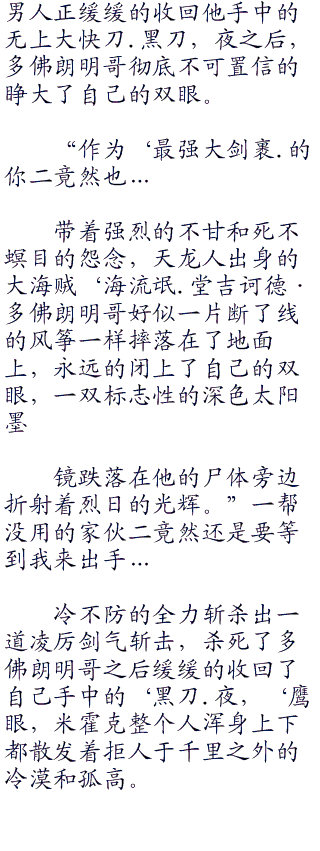 男人正缓缓的收回他手中的
无上大快刀.黑刀，夜之后，
多佛朗明哥彻底不可置信的
睁大了自己的双眼。
“作为‘最强大剑裹.的
你二竟然也…
带着强烈的不甘和死不
螟目的怨念，天龙人出身的
大海贼‘海流氓.堂吉诃德·
多佛朗明哥好似一片断了线
的风筝一样摔落在了地面
上，永远的闭上了自己的双
眼，一双标志性的深色太阳
墨
镜跌落在他的尸体旁边
折射着烈日的光辉。”一帮
没用的家伙二竟然还是要等
到我来出手…
冷不防的全力斩杀出一
道凌厉剑气斩击，杀死了多
佛朗明哥之后缓缓的收回了
自己手中的‘黑刀.夜，‘鹰
眼，米霍克整个人浑身上下
都散发着拒人于千里之外的
冷漠和孤高。